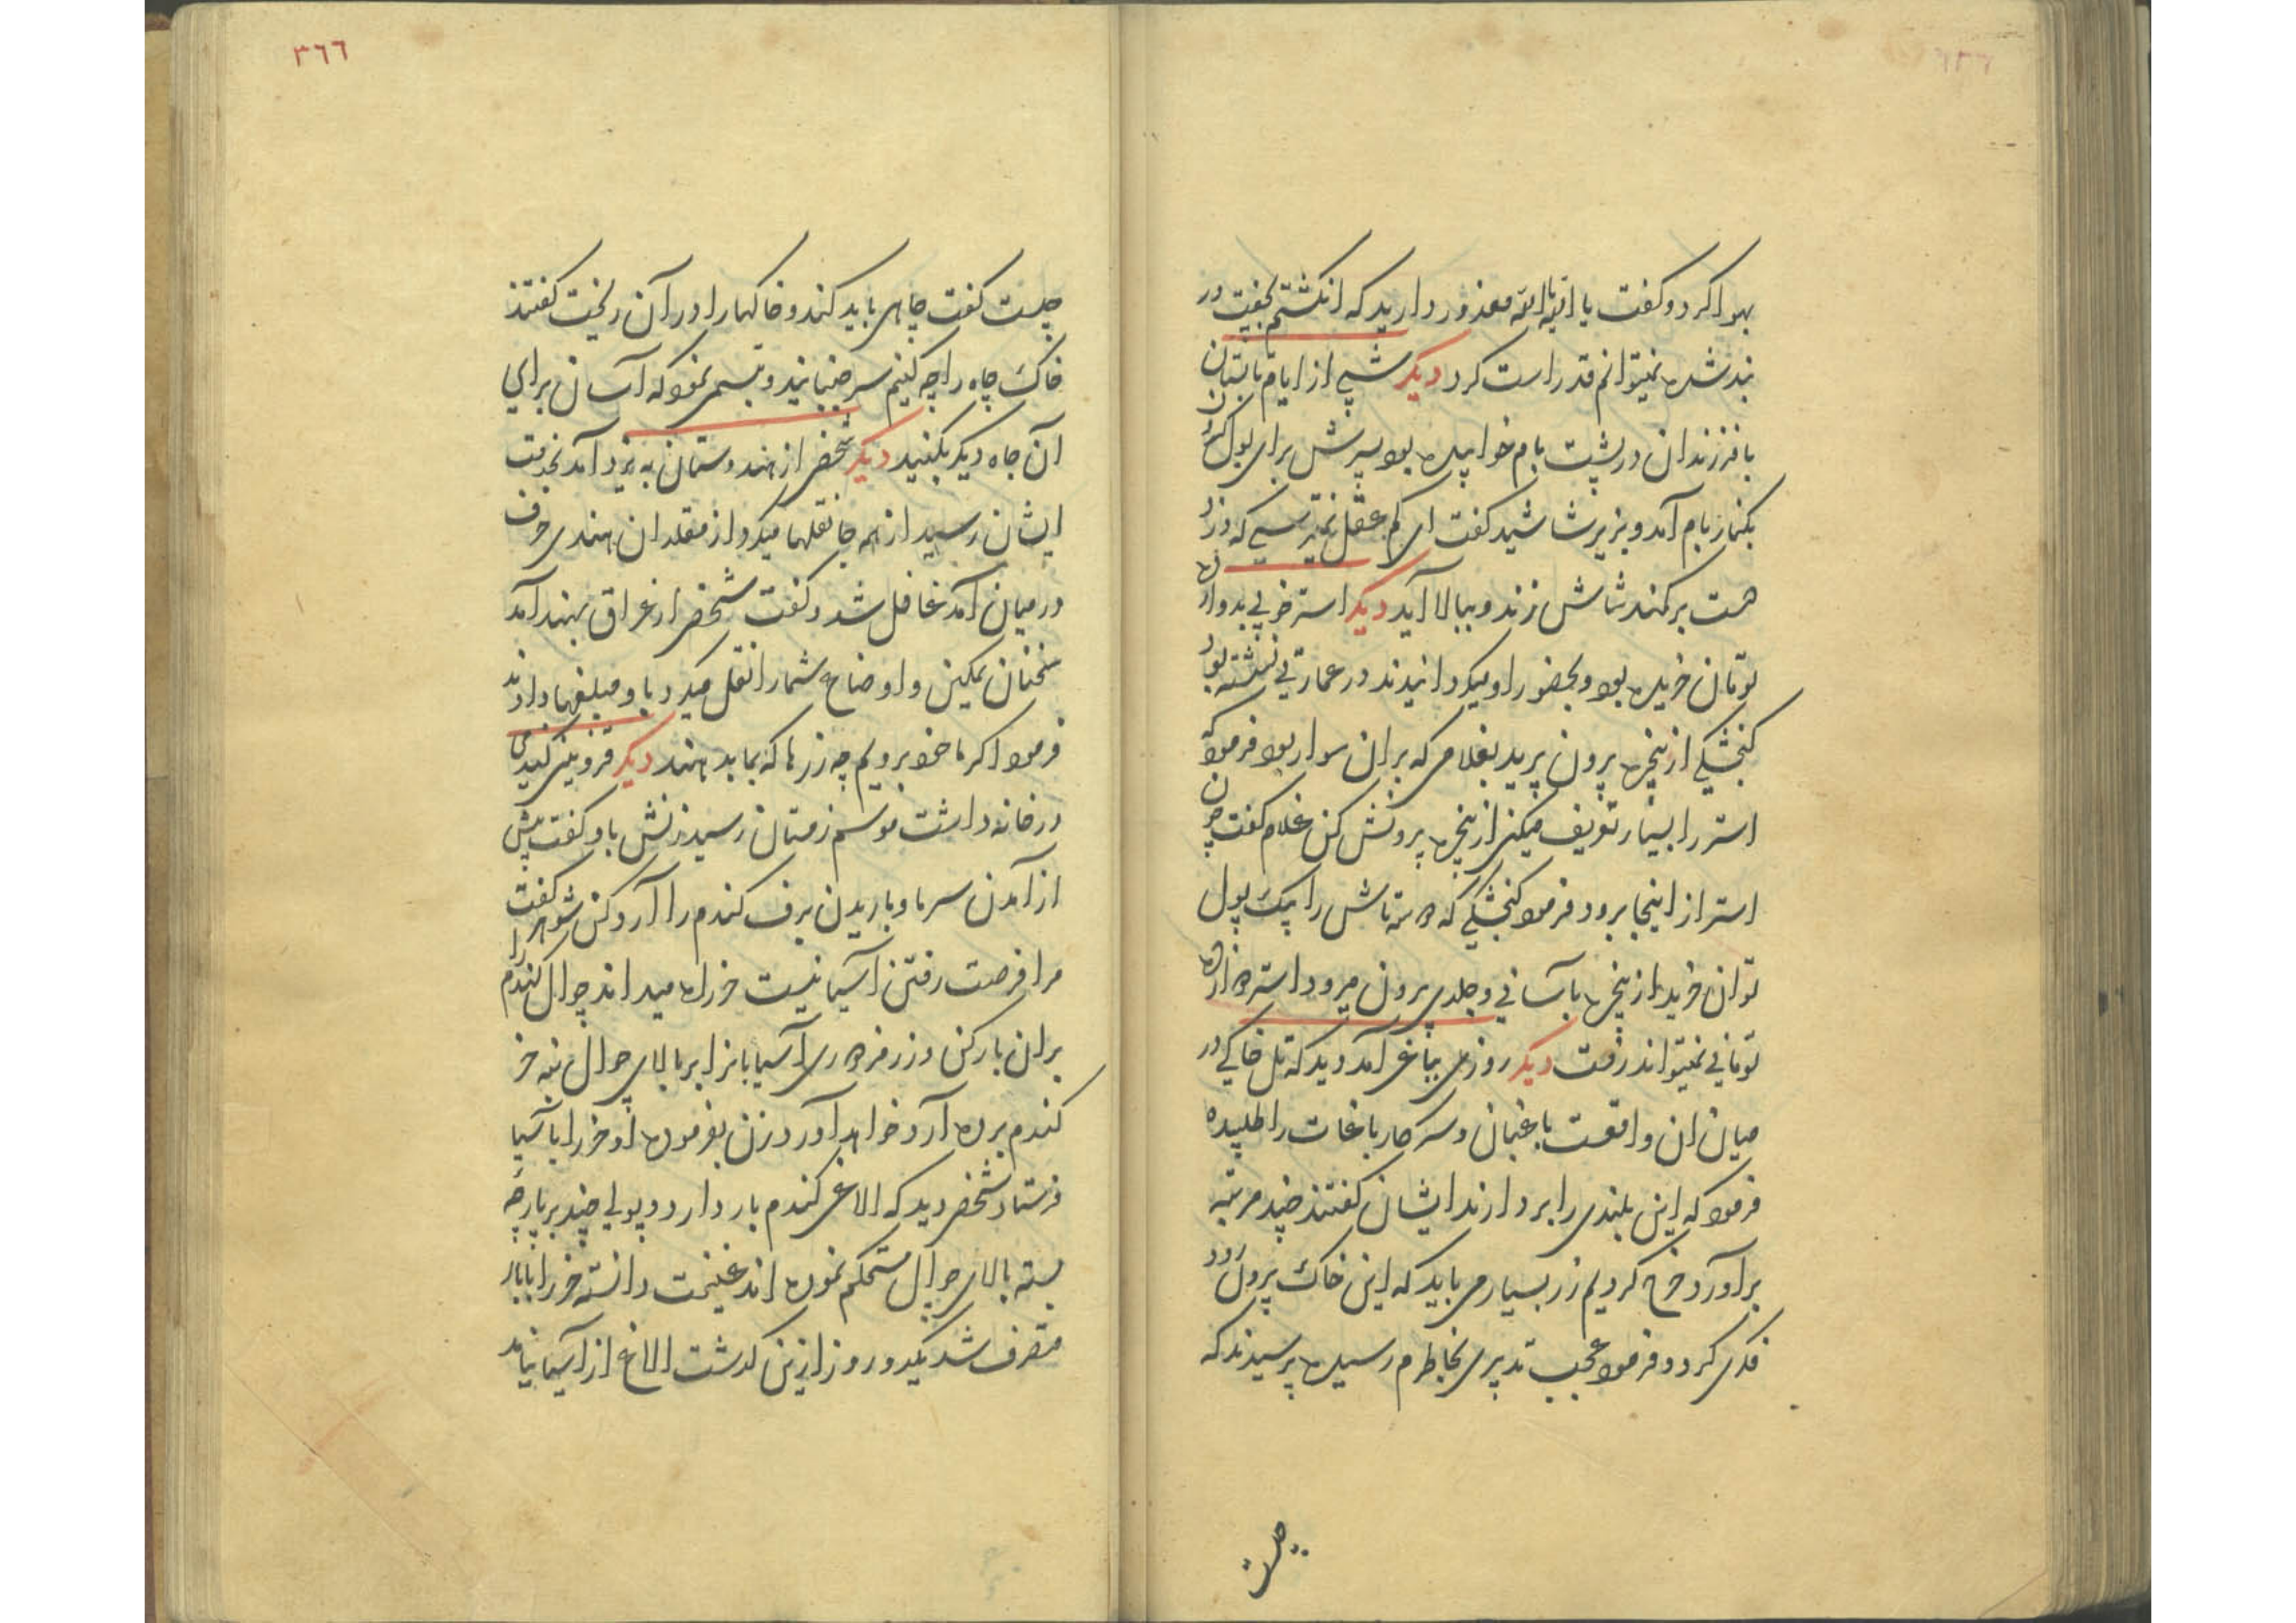 بهوا کرد و کفت یا ایها الله معذور دارید که انکشتم بجفیت در
بند شده نمیتوانم قد راست کرد دیکر شبی از ایام تابستان
با فرزندان در پشت بام خوابیده بود پسرش برای بول کردن
بکنار بام آمد و بزیر شاشید کفت ای کم عقل نمیترسی که دزد
همت بر کمند شاش زند و ببالا آید دیکر استر خوبی بدوازده
تومان خریده بود و بحضور او میکردانیدند در عمارتی نشسته بود
کنجشکی از پنجره بیرون پرید بغلامی که بران سوار بود فرمود که
استر را بسیار تعریف میکنی از پنجره بیرونش کن غلام کفت چون
استر از اینجا برود فرمود کنجشکی که ده تاش را بیک پول
توان خرید از پنجره بآسانی و جلدی بیرون میرود استر دوازده
تومانی نمیتواند رفت دیکر روزی بباغی آمد دید که تل خاکی در
میان ان واقعست باغبان و سرکار باغات را طلبیده
فرمود که این بلندی را بردارند ایشان کفتند چند مرتبه
برآورد خرج کردیم زر بسیار می باید که این خاک بیرون رود
فکری کرد و فرمود عجب تدبیری بخاطرم رسیده پرسیدند که
چیست
٣٦٦
چیست کفت چاهی باید کند و خاکها را در آن ریخت کفتند
خاک چاه را چه کنیم سر جنبانید و تبسمی نمود که آسان برای
آن چاه دیکر بکنید دیکر شخصی از هندوستان به یزد آمد بخدمت
ایشان رسید از همه جا نقلها میکرد از مقلدان هندی حرف
در میان آمد غافل شد و کفت شخصی از عراق بهند آمد
سخنان نمکین و اوضاع شما را نقل میکرد باو مبلغها دادند
فرمود اکر ما خود برویم چه زرها که بما بدهند دیکر قزوینی کندمی
در خانه داشت موسم زمستان رسید زنش باو کفت پیش
از آمدن سرما و باریدن برف کندم را آرد کن شوهر کفت
مرا فرصت رفتن آسیا نیست خر راه میداند جوال کندم را
بران بار کن و زر مزدوری آسیابانرا بر بالای جوال بنه خر
کندم برده آرد خواهد آورد زن بفرموده او خر را باسیا
فرستاد شخصی دید که الاغی کندم بار دارد و پولی چند بر پارچه
بسته بالای جوال مستحکم نموده اند غنیمت دانسته خر را با بار
متصرف شد یکدو روز ازین کذشت الاغ از آسیا نیامد